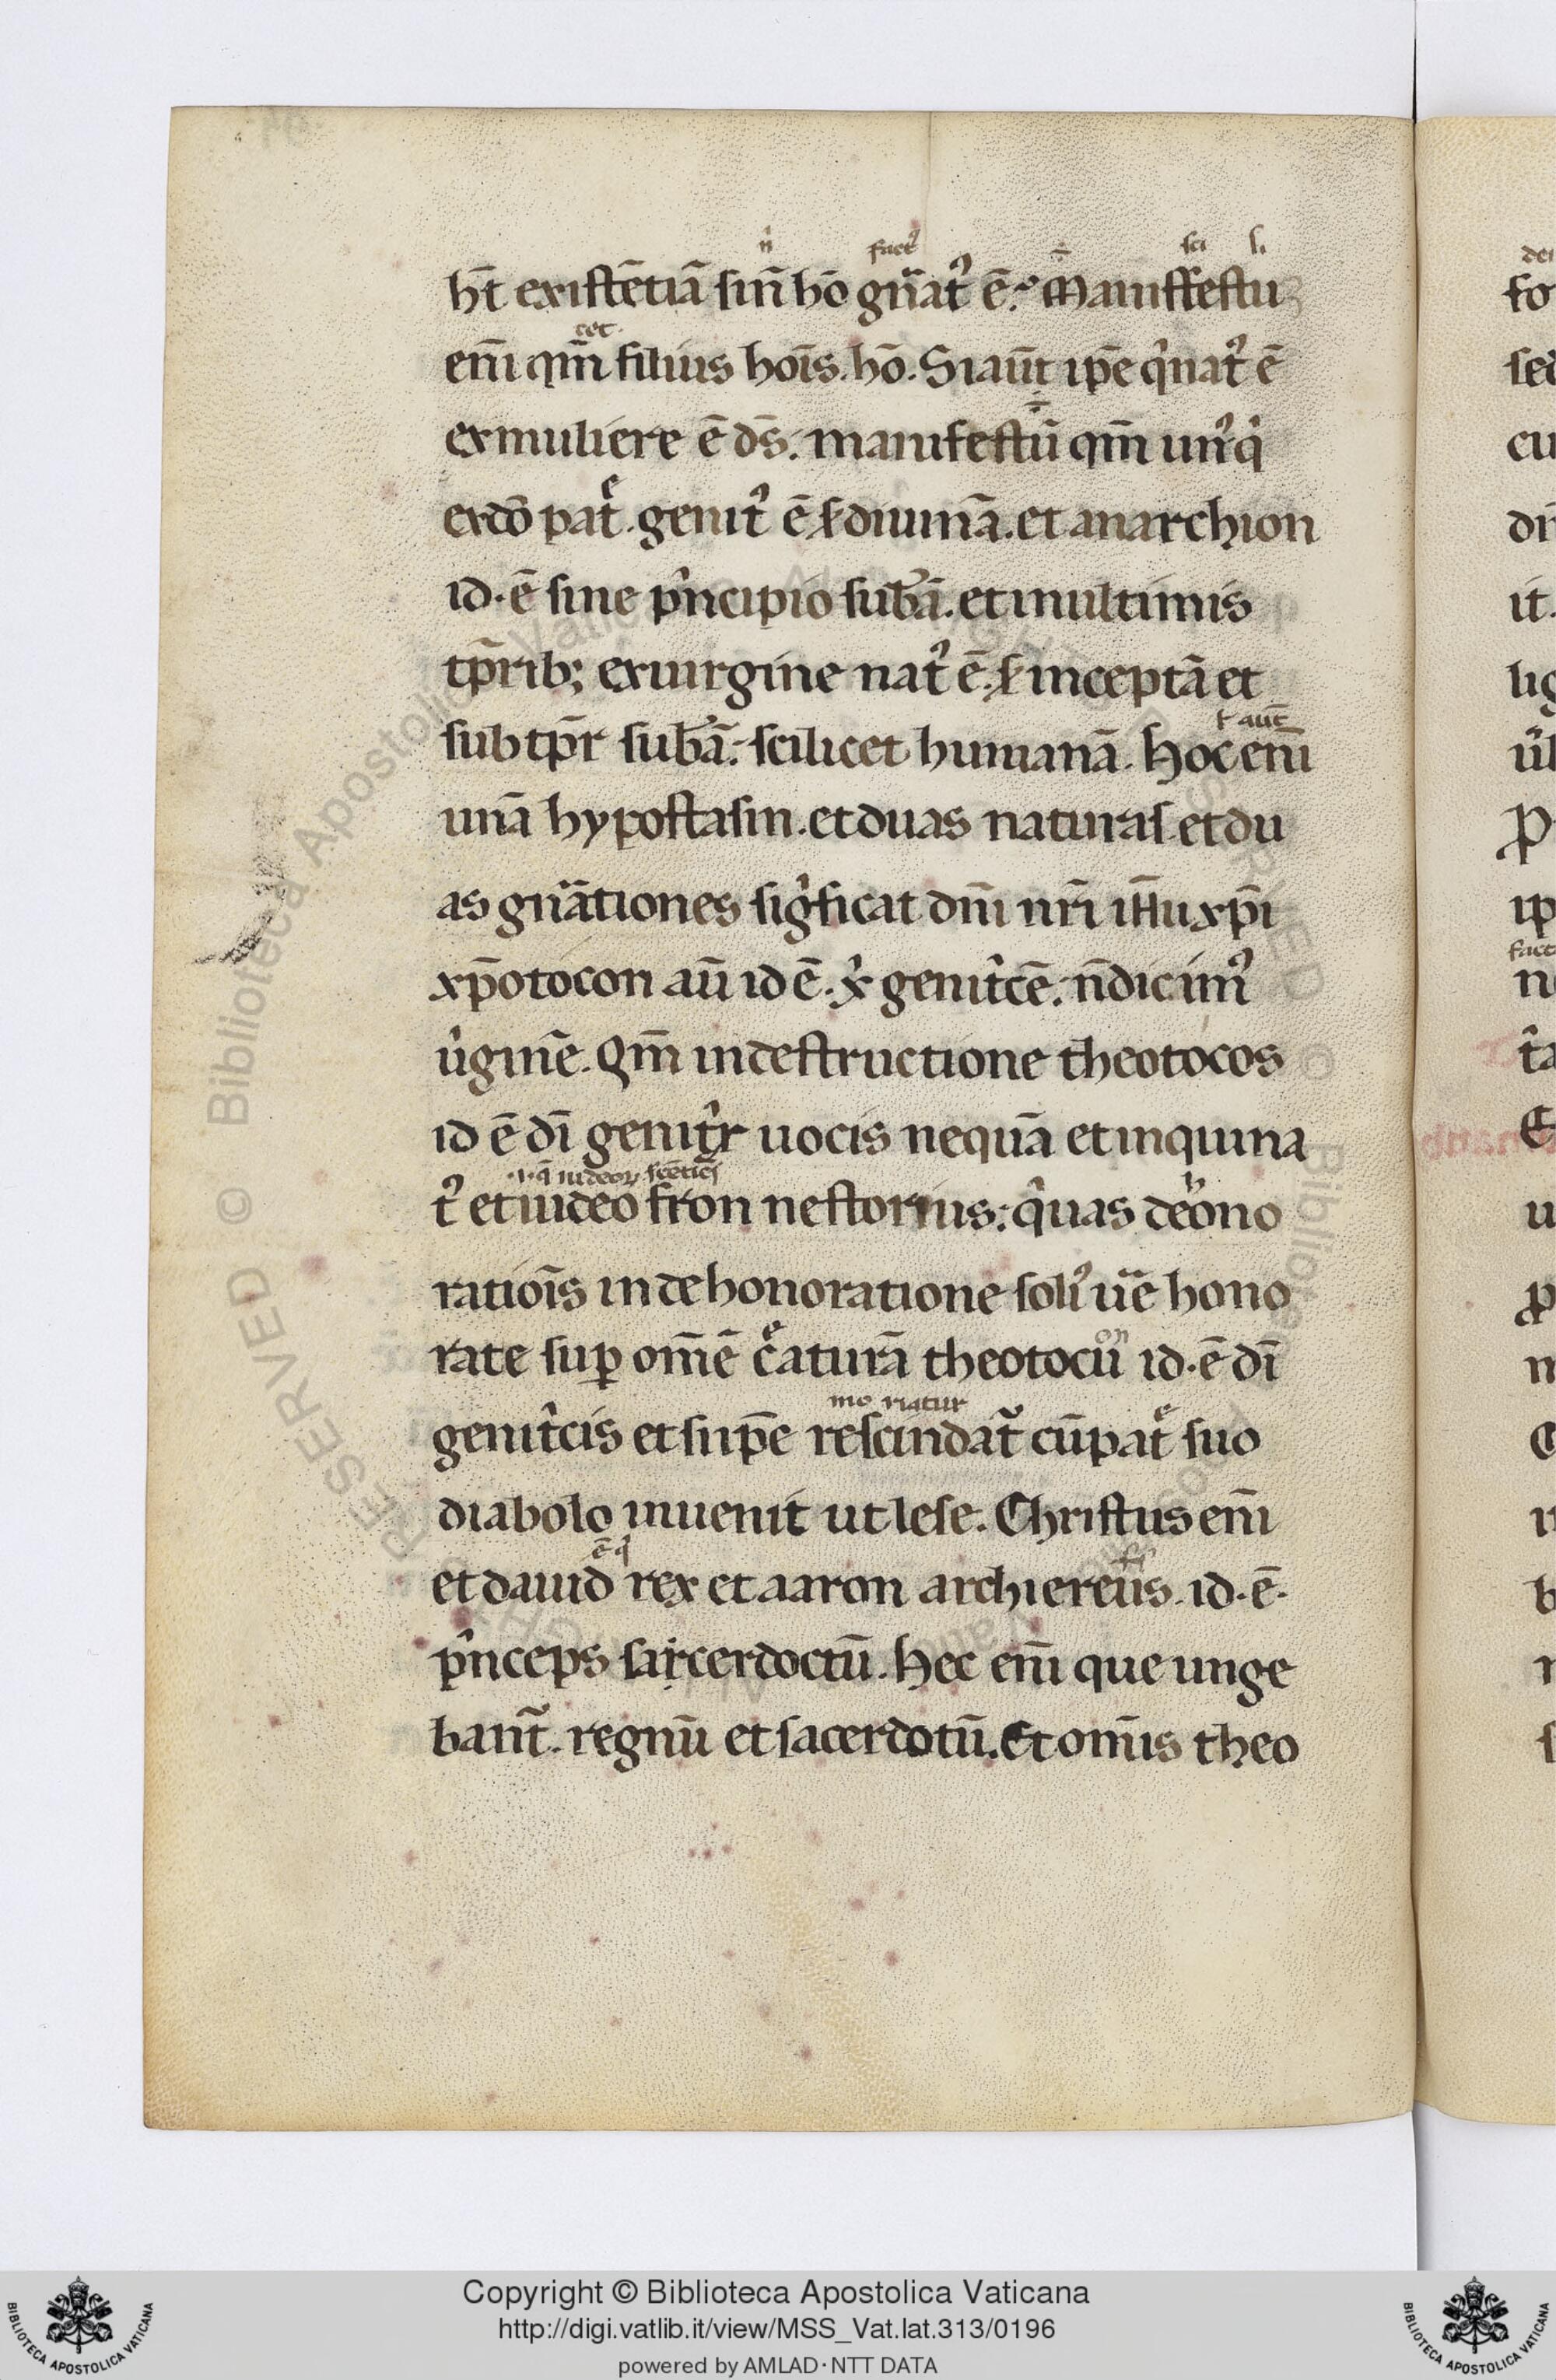 ht̄ existētiā sin̄ hō gn̄atꝰ ē. Maniffestuʒ
em̄ qm̄ filius hoīs. hō. Si aūt ip̄e q̇ natꝰ ē
ex muliere ē ds̄. manifestū qm̄ unꝰ q̇
ex dō patͤ. genitꝰ ē ẜ diuinā. et anarchion
id. ē sine pͥncipio sub̄ā. et in ultimis
tp̄rib; ex uirgine natꝰ ē. ẜ inceptā et
sub tp̄r sub̄ā. scilicet humanā. Hoc em̄
ł aūt
unā hypostasin. et duas naturas. et du
as gn̄ationes sigͥficat dn̄i nr̄i iħu xp̄i
xp̄otocon aū id ē. genitͥcē. n̄ dicimꝰ
uͥginē. Qm̄ in destructione theotocos
id ē dī uocis nequā et inquina
tꝰ et iudeo fron nestorius. qͥ uas deōno
ratioīs in dehonoratione soliꝰ ūe hono
rate suꝑ om̄ē cͤaturā theotocū id. ē dī
on
genitͥcis et sup̄e rescindat̄ cū patͤ suo
mo riatur
diabolo inuenit ut lese. Christus em̄
et dauid rex et aaron archiereus. id. ē.
pͥnceps sarcerdoctū. Hec em̄ que unge
bant̄. regnū et sacerdotū. Et om̄is theo
Copyright © Biblioteca Apostolica Vaticana
http://digi.vatlib.it/view/MSS_Vat.lat.313/0196
powered by AMLAD·NTT DATA
BIBLIOTECA APOSTOLICA VATICANA
BIBLIOTECA APOSTOLICA VATICANA